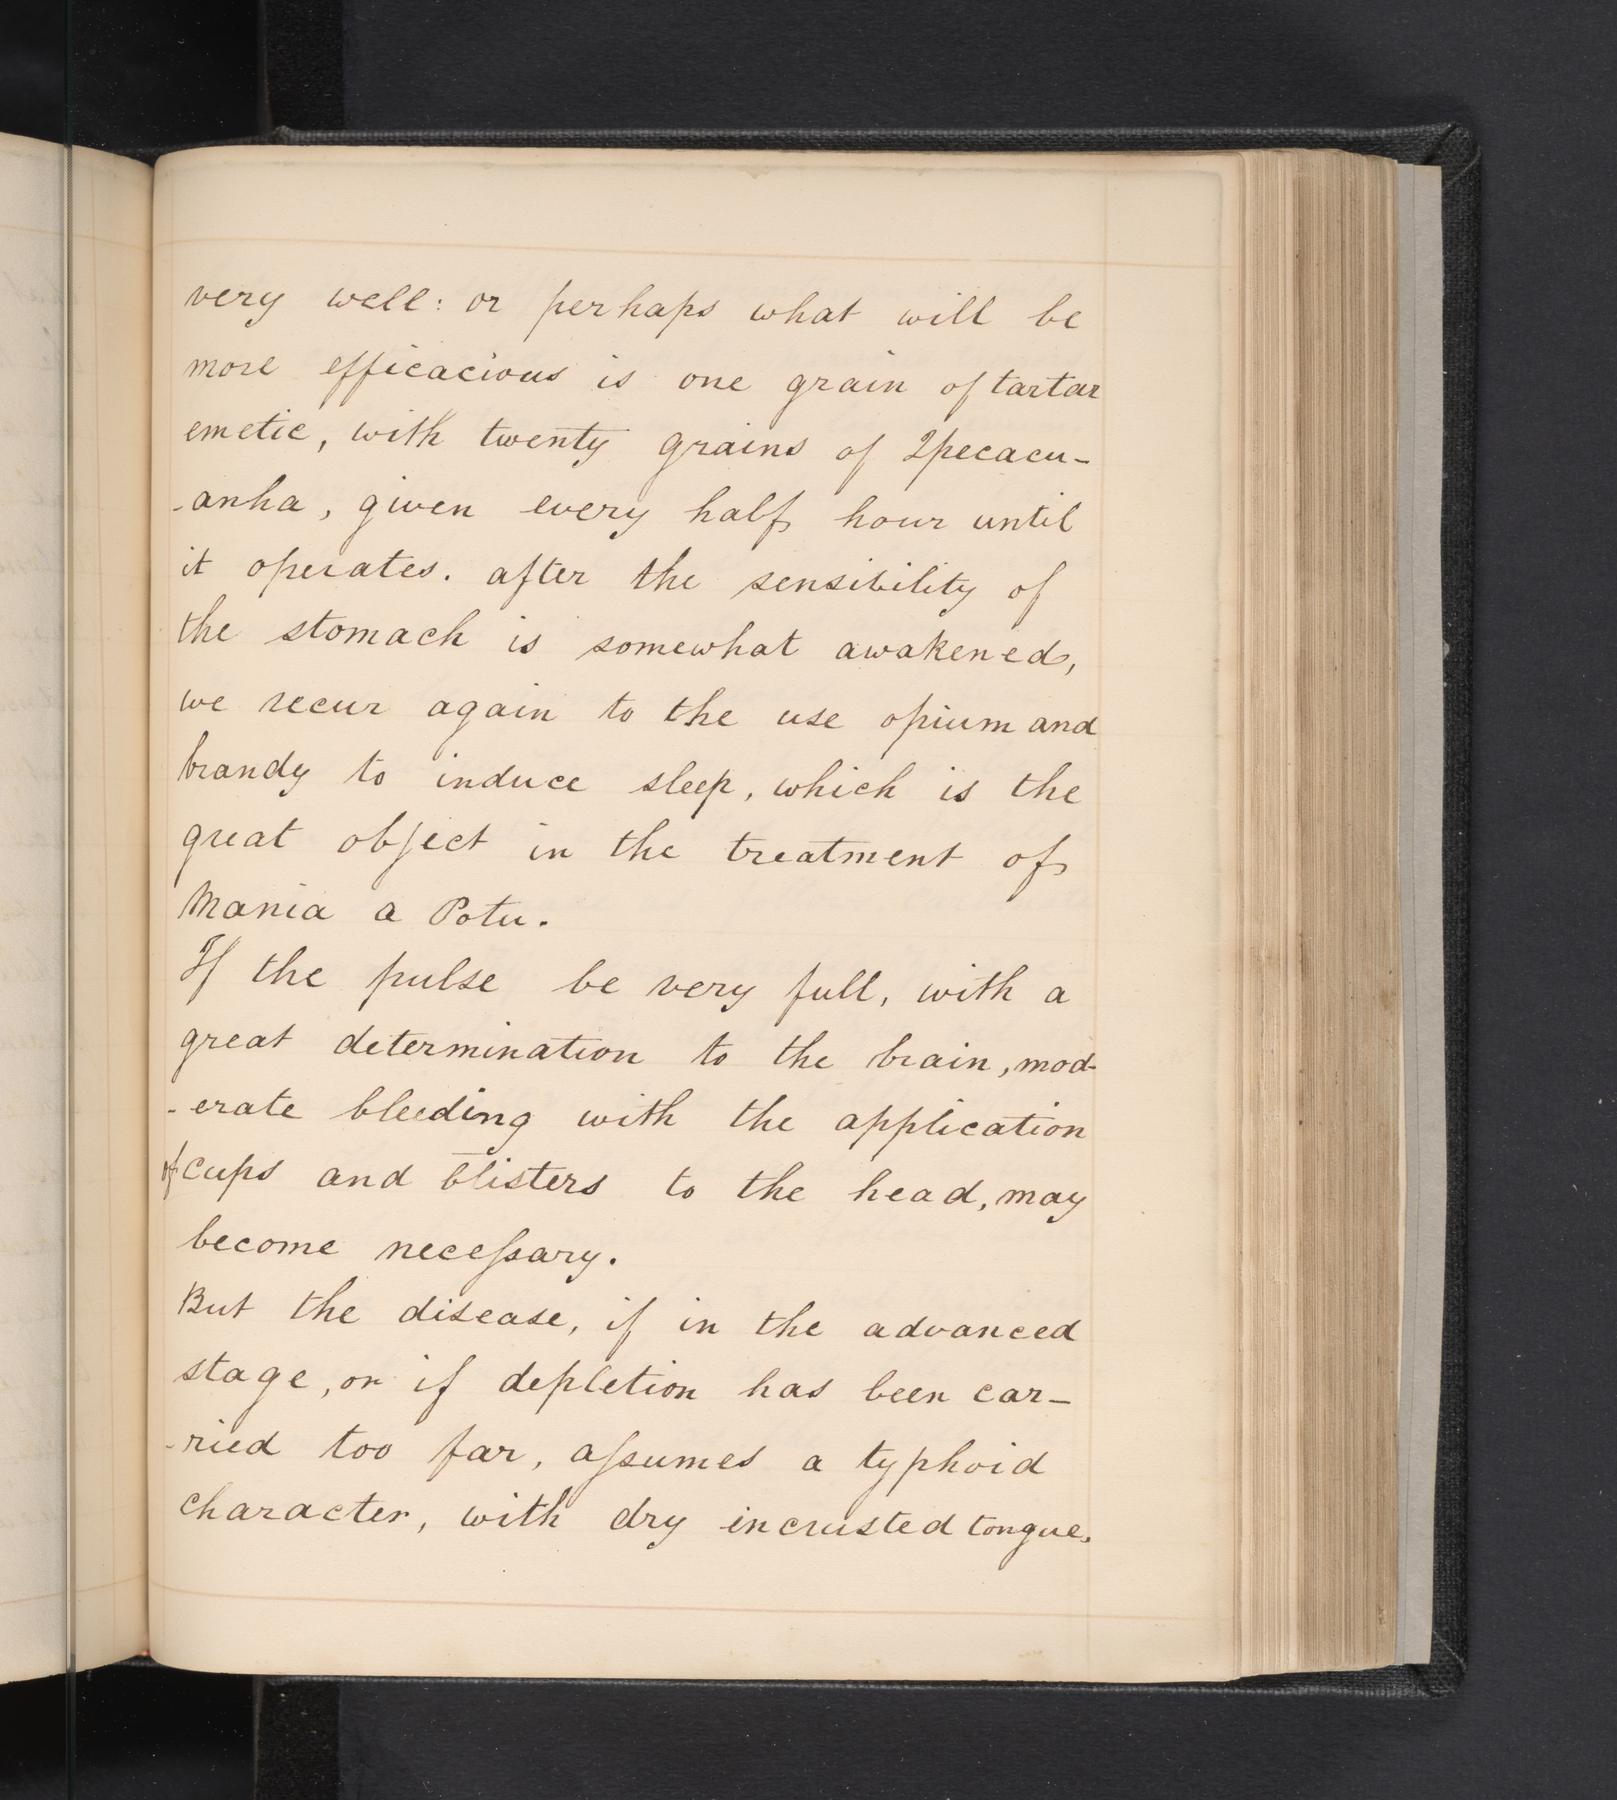 very well: or perhaps what will be
more efficacious is one grain of tartar
emetic, with twenty grains of Ipecacu-
-anha, given every half hour until
it operates. after the sensibility of
the stomach is somewhat awakened,
we recur again to the use opium and
brandy to induce sleep, which is the
great object in the treatment of
Mania a Potu.
If the pulse be very full, with a
great determination to the brain, mod-
-erate bleeding with the application
of cups and blisters to the head, may
become neceſsary.
But the disease, if in the advanced
stage, or if depletion has been car-
-ried too far, aſsumes a typhoid
character, with dry incrusted tongue,